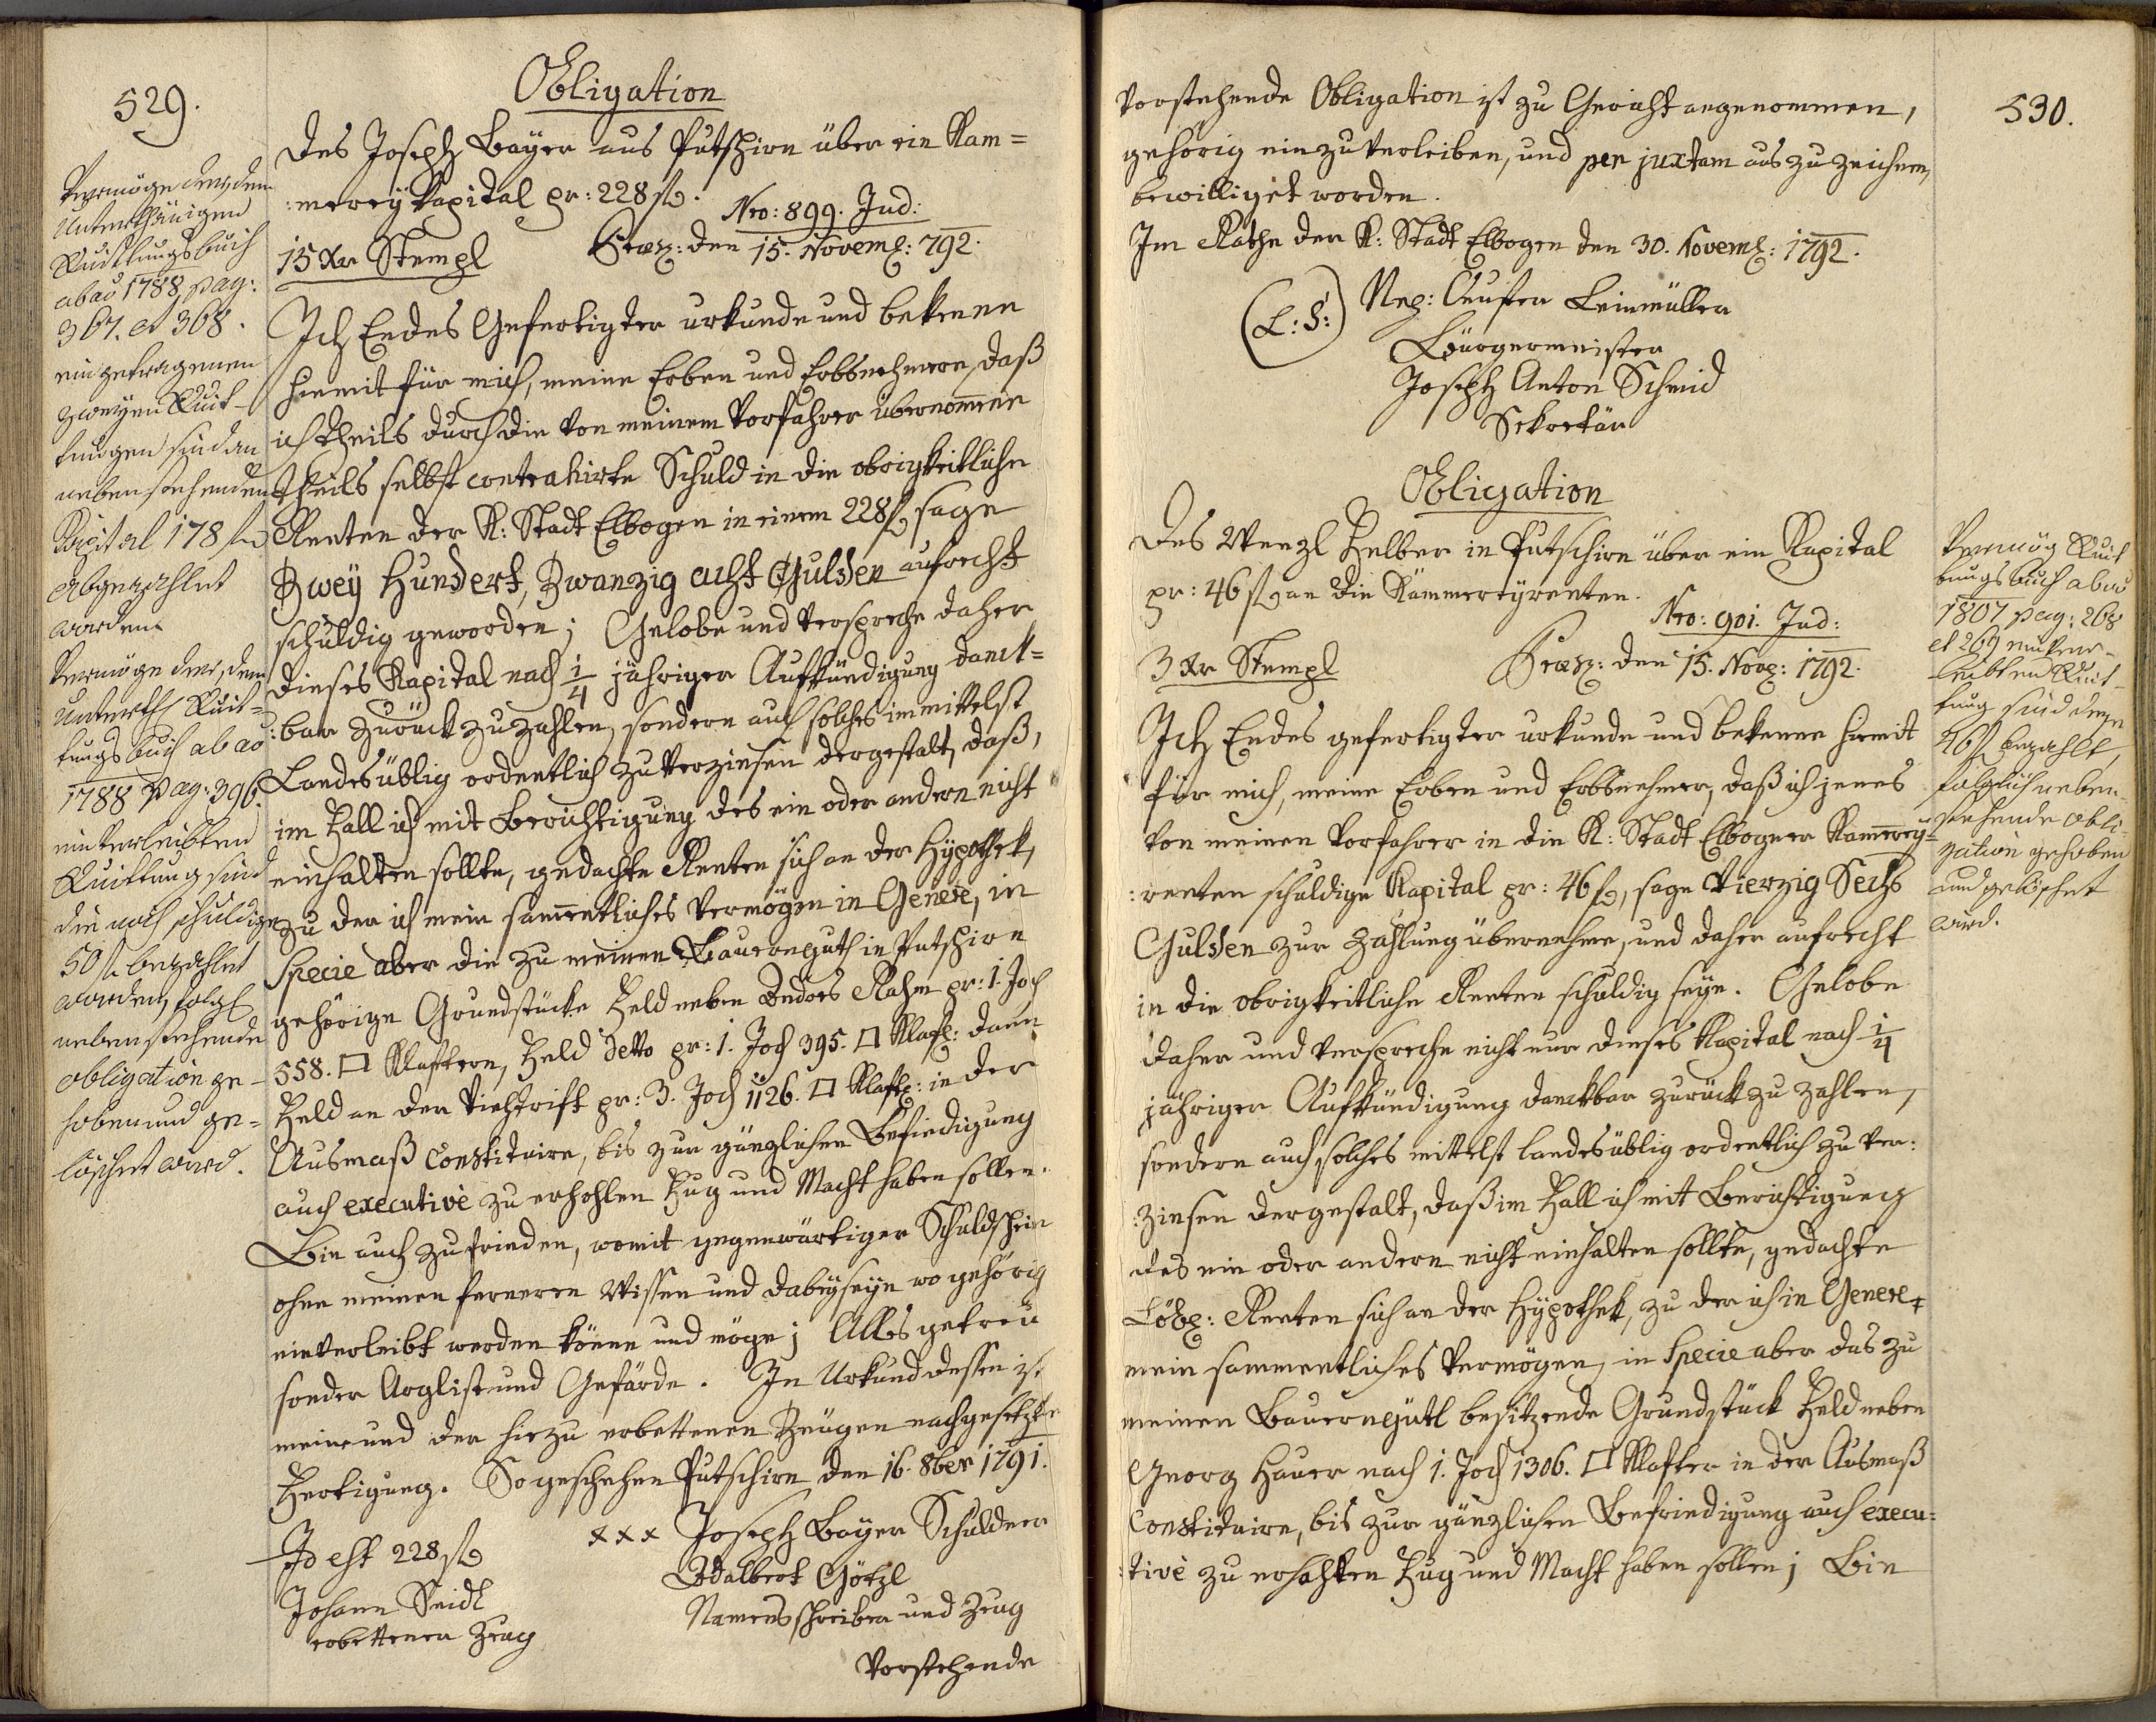 529.
Obligation
des Joseph Bayer aus Putschirn über ein Kam=
:merey Kapital pr: 228 fl.
Nro: 899. Jud:
15 Xr Stempl
Præs: den 15. Novemb: 792.
Ich Endes Gefertigter urkunde und bekenne
hiemit für mich, meine Erben und Erbsnehmere, daß
ich theils durch die von meinem Vorfahrer übernommene
theils selbst contrahirte Schuld in die obrigkeitliche
Renten der K: Stadt Elbogen in einem 228 fl. sage
Zwey Hundert, Zwanzig acht Gulden aufrecht
schuldig geworden; Gelobe und verspreche daher
dieses Kapital nach 1/4 jähriger Aufkündigung danck=
:bar zurück zu zahlen, sondern auch solches immittelst
Landesüblig ordentlich zu verzinsen dergestalt, daß,
im Fall ich mit Berichtigung des ein oder andern nicht
einhalten sollte, gedachte Renten sich an der Hypothek,
zu der ich mein sammentliches Vermögen in Genere, in
Specie aber die zu meinen Bauernguth in Putschirn
gehörige Grundstücke Feld neben Andres Rahm pr: 1. Joch
558. □ Klaftern, Feld detto pr: 1. Joch 395. □ Klaft: dann
Feld an der Viehtrift pr: 3. Joch 1126. □ Klaft: in der
Ausmaß Constituire, bis zur gänzlichen Befriedigung
auch executivè zu erhohlen Fug und Macht haben sollen.
Bin auch zufrieden, womit gegenwärtiger Schuldschein
ohne meinen ferneren Wissen und Dabeyseyn wo gehörig
einverleibt werden könne und möge; Alles getreu
sonder Arglist und Gefärde. In Urkund dessen ist
meine und der hiezu erbettenen Zeugen nachgesetzte
Fertigung. So geschehen Putschirn den 16. 8ber 1791.
Id est 228 fl.
xxx Joseph Bayer Schuldner
Johann Seidl
erbettener Zeug
Adalbert Götzl
Namensschreiber und Zeug
Vorstehende
Vermöge der, dem
Unterthänigen
Quittungsbuch
ab ao 1788 pag:
367. et 368.
eingetragenen
zweyen Quit-
tungen sind an
nebenstehenden
Kapital 178 fl
abgezahlet
worden.
Vermöge der, dem
Unterth Quit-
tungsbuch ab ao
1788 pag: 396.
einverleibten
Quittung sind
die noch schuldige
50 fl. bezahlet
worden, folgl
nebenstehende
obligation ge-
hoben und ge-
löschet wird.
530.
Vorstehende Obligation ist zu Gericht angenommen,
gehörig einzuverleiben, und per juxtam auszuzeichnen,
bewilliget worden.
Im Rathe der K: Stadt Elbogen den 30. Novemb: 1792.
(L: S:)
Nep: Leinmüller
Bürgermeister
Joseph Anton Schmid
Sekretär
Obligation
Des Wenzl Helber in Putschirn über ein Kapital
pr: 46 fl. an die Kämmereyrenten.
Nro: 901. Jud:
3 Xr Stempl
Præs: den 15. Nov: 1792.
Ich Endes gefertigter urkunde und bekenne hiemit
für mich, meine Erben und Erbsnehmer, daß ich jenes
von meinen Vorfahrer in die K: Stadt Elbogner Kammerey=
:renten schuldige Kapital pr: 46 fl., sage Vierzig Sechs
Gulden zur Zahlung übernehme, und daher aufrecht
in die obrigkeitliche Renten schuldig seye. Gelobe
daher und verspreche nicht nur dieses Kapital nach 1/4
jähriger Aufkündigung danckbar zurück zu zahlen,
sondern auch solches mittelst landesüblig ordentlich zu ver:
:zinsen dergestalt, daß im Fall ich mit Berichtigung
des ein oder andern nicht einhalten sollte, gedachte
Löbl: Renten sich an der Hypothek, zu der ich in Genere
mein sammentliches Vermögen, in Specie aber das zu
meinen Bauerngütl besitzende Grundstück Feld neben
Georg Hauer nach 1. Joch 1306. □ Klafter in der Ausmaß
Constituire, bis zur gänzlichen Befriedigung auch execu:
:tivè zu erhalten Fug und Macht haben sollen; Bin
Vermög Quit
tungsbuch ab ao
1807 pag: 268
et 269 einver-
leibten Quit-
tung sind diese
46 fl. bezahlt,
folglich neben-
stehende obli-
gation gehoben
und gelöschet
wird.